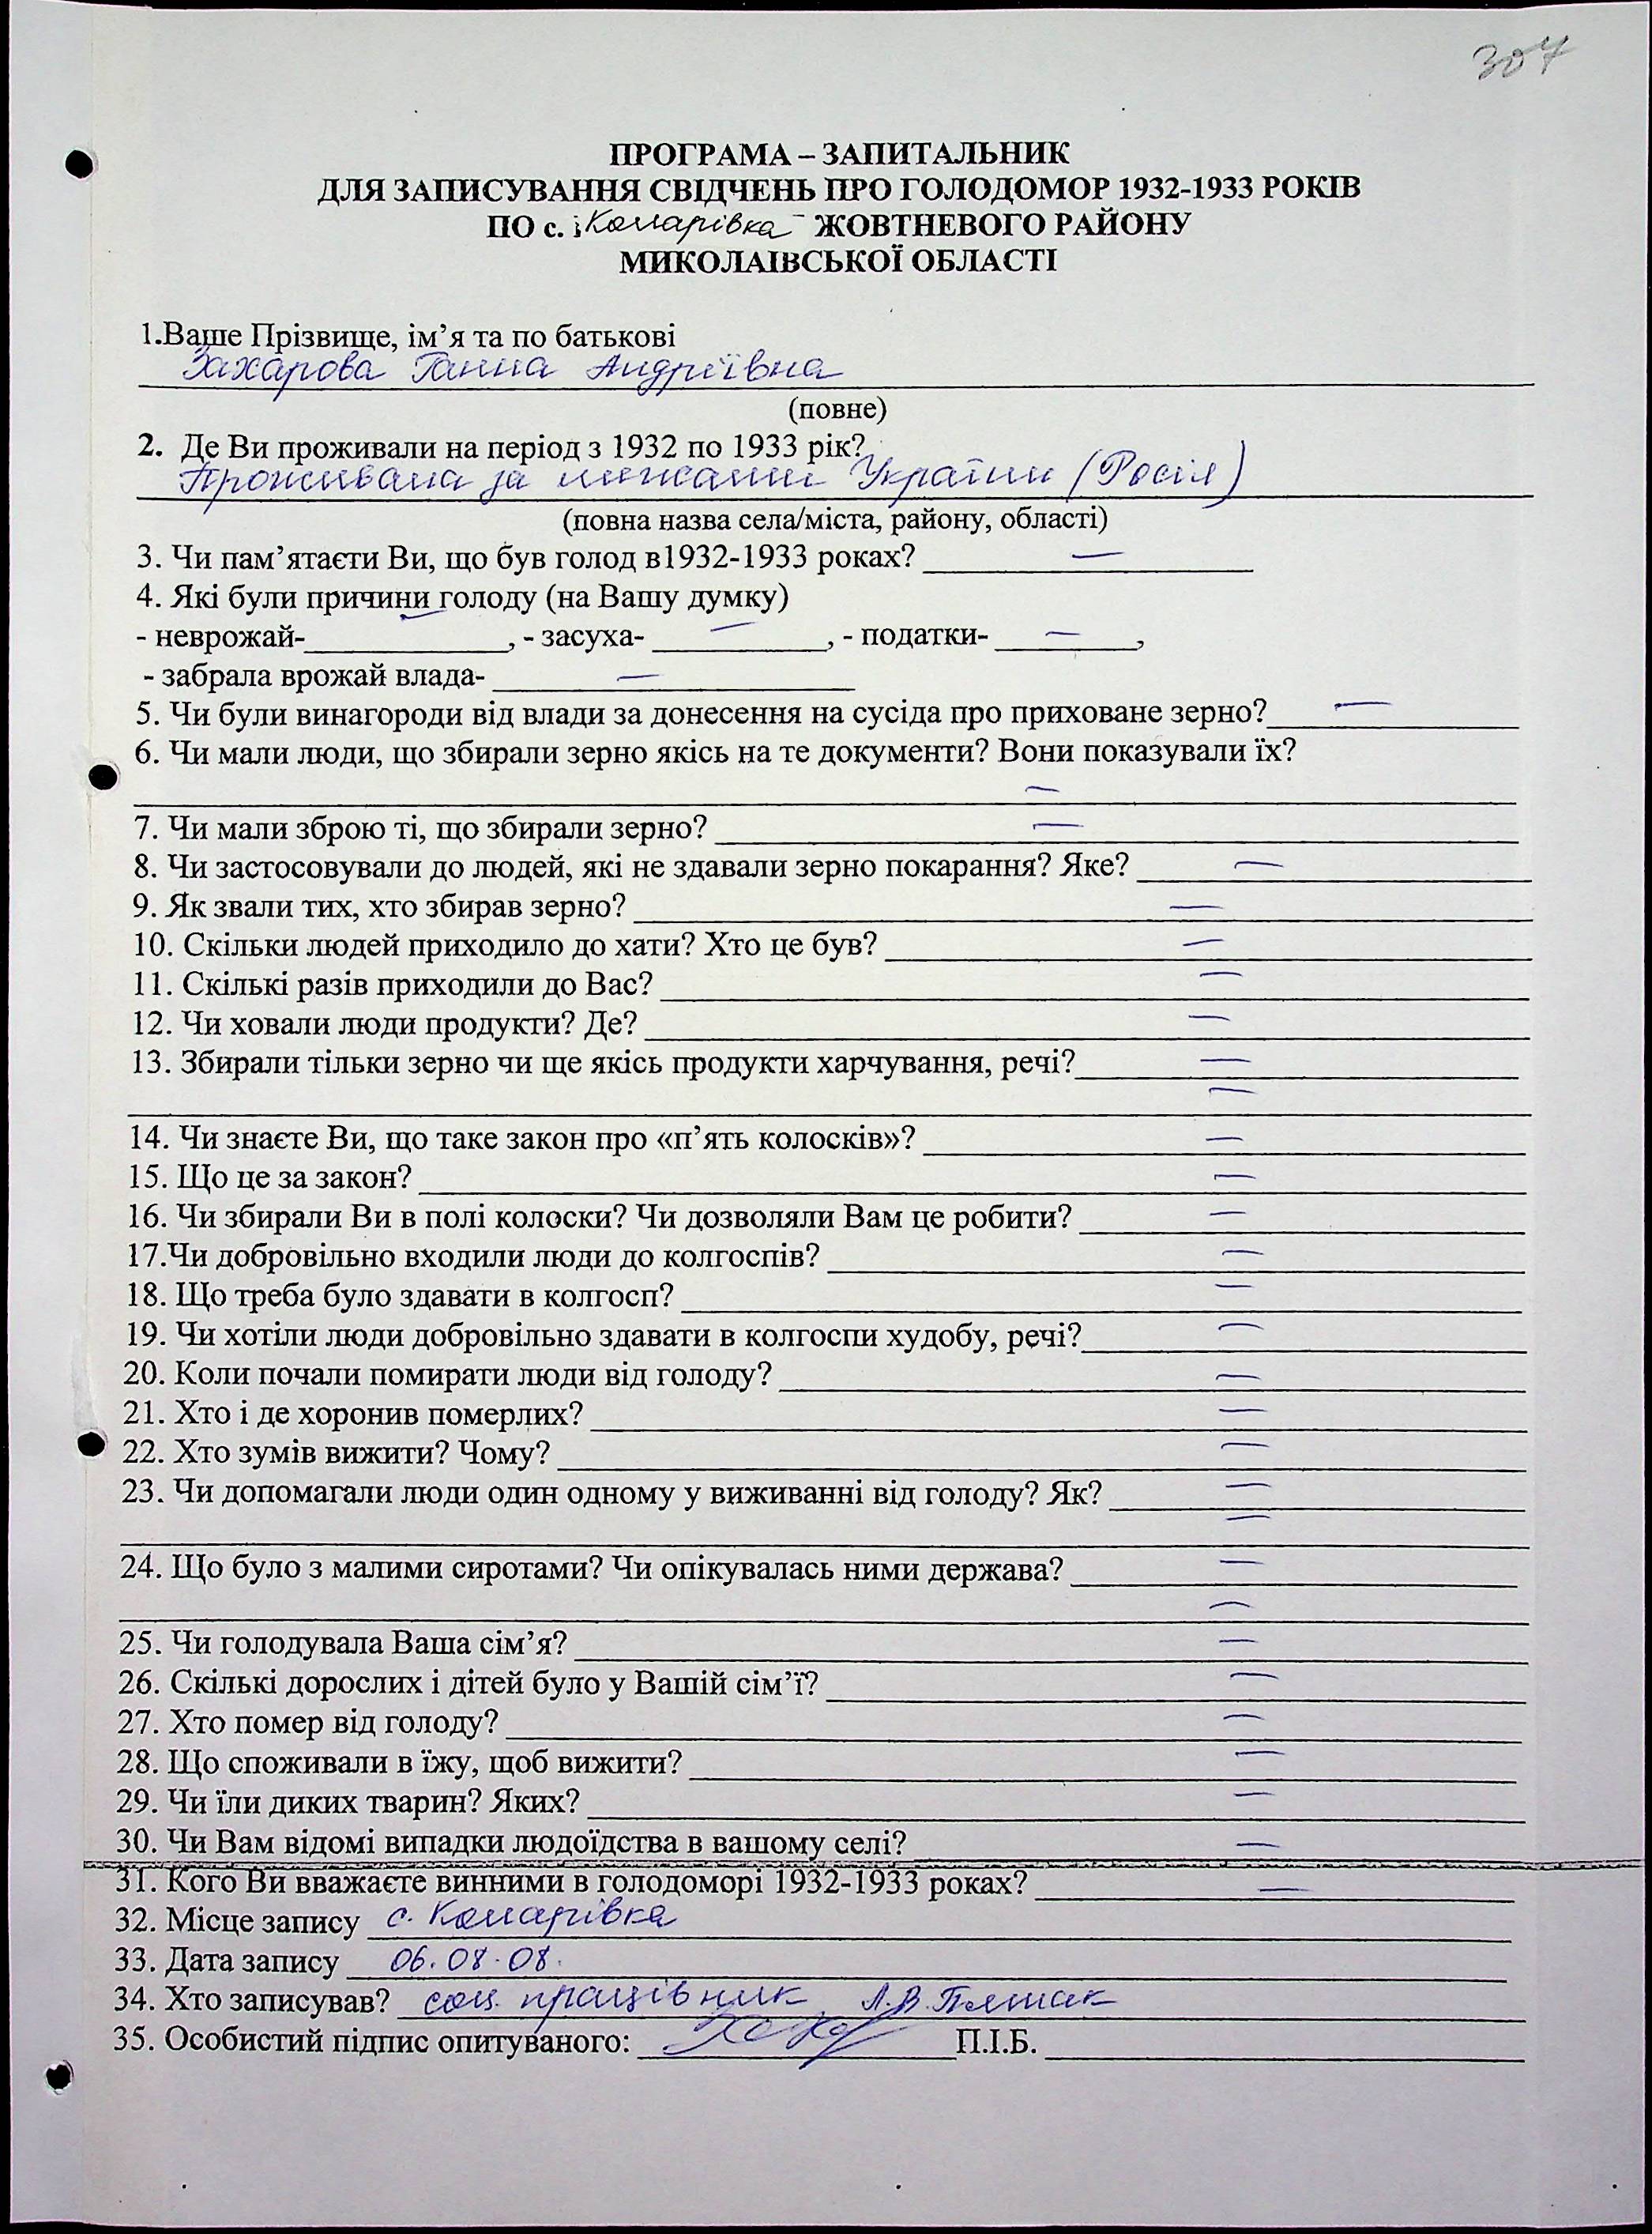 307
ПРОГРАМА – ЗАПИТАЛЬНИК
ДЛЯ ЗАПИСУВАННЯ СВІДЧЕНЬ ПРО ГОЛОДОМОР 1932-1933 РОКІВ
ПО с. Комарівка ЖОВТНЕВОГО РАЙОНУ
МИКОЛАІВСЬКОЇ ОБЛАСТІ
1.Ваше Прізвище, ім’я та по батькові
Захарова Ганна Андріївна
(повне)
2. Де Ви проживали на період з 1932 по 1933 рік?
Проживала за межами України (Росія)
(повна назва села/міста, району, області)
3. Чи пам’ятаєти Ви, що був голод в1932-1933 роках? —
4. Які були причини голоду (на Вашу думку)
- неврожай- — , - засуха- — , - податки- — ,
- забрала врожай влада- —
5. Чи були винагороди від влади за донесення на сусіда про приховане зерно? —
6. Чи мали люди, що збирали зерно якісь на те документи? Вони показували їх?
—
7. Чи мали зброю ті, що збирали зерно? —
8. Чи застосовували до людей, які не здавали зерно покарання? Яке? —
9. Як звали тих, хто збирав зерно? —
10. Скільки людей приходило до хати? Хто це був? —
11. Скількі разів приходили до Вас? —
12. Чи ховали люди продукти? Де? —
13. Збирали тільки зерно чи ще якісь продукти харчування, речі? —
—
14. Чи знаєте Ви, що таке закон про «п’ять колосків»? —
15. Що це за закон? —
16. Чи збирали Ви в полі колоски? Чи дозволяли Вам це робити? —
17.Чи добровільно входили люди до колгоспів? —
18. Що треба було здавати в колгосп? —
19. Чи хотіли люди добровільно здавати в колгоспи худобу, речі? —
20. Коли почали помирати люди від голоду? —
21. Хто і де хоронив померлих? —
22. Хто зумів вижити? Чому? —
23. Чи допомагали люди один одному у виживанні від голоду? Як? —
—
24. Що було з малими сиротами? Чи опікувалась ними держава? —
—
25. Чи голодувала Ваша сім’я? —
26. Скількі дорослих і дітей було у Вашій сім’ї? —
27. Хто помер від голоду? —
28. Що споживали в їжу, щоб вижити? —
29. Чи їли диких тварин? Яких? —
30. Чи Вам відомі випадки людоїдства в вашому селі? —
31. Кого Ви вважаєте винними в голодоморі 1932-1933 роках? —
32. Місце запису с. Комарівка
33. Дата запису 06.08.08.
34. Хто записував? соц. працівник Л.В.
35. Особистий підпис опитуваного: П.І.Б.